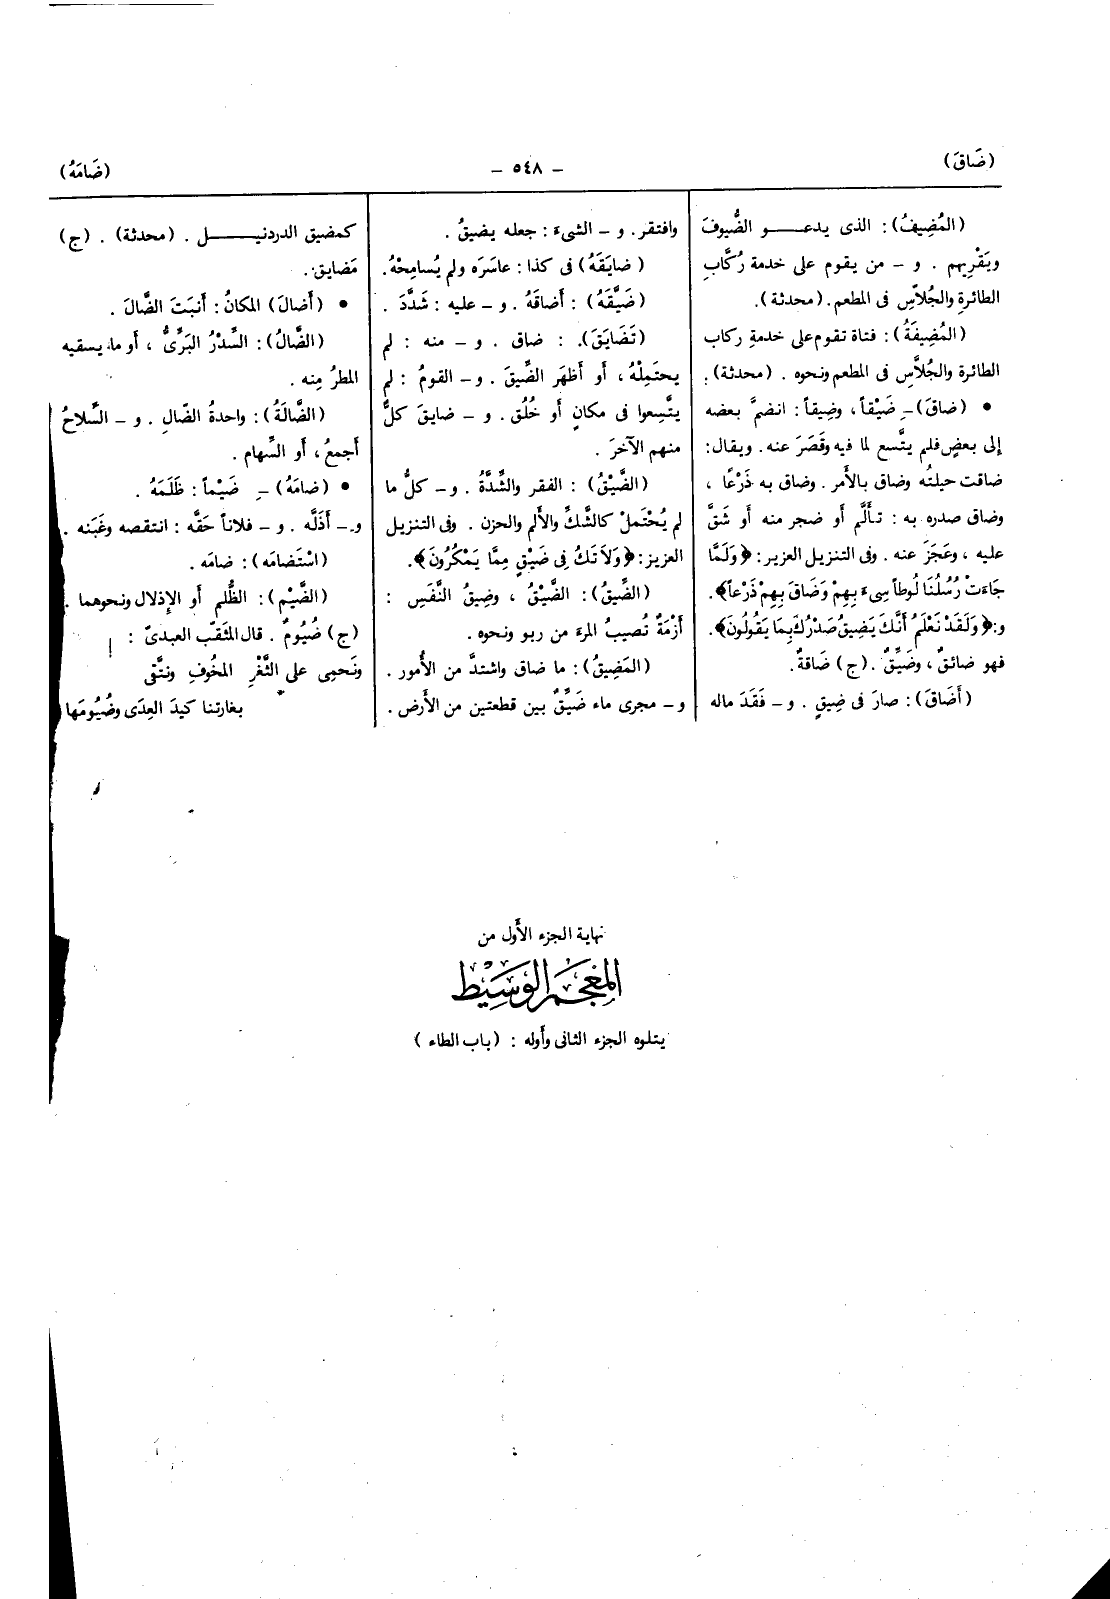 (ضَاقَ)
– ٥٤٨ –
(ضَامَهُ)
(المُضِيفُ): الذى يدعــــو الضُّيوفَ
ويَقْرِيهم . و – من يقوم على خدمة رُكَّابِ
الطائرةِ والجُلاّسِ فى المطعم. (محدثة).
(المُضِيفَةُ): فتاة تقوم على خدمةِ ركاب
الطائرة والجُلاَّسِ فى المطعم ونحوه . (محدثة).
• (ضاقَ) –ِ ضَيْقاً، وضِيقاً: انضمَّ بعضه
إلى بعضٍ فلم يتَّسع لما فيه وقَصَرَ عنه. ويقال:
ضاقت حيلتُه وضاق بالأمر. وضاق به ذَرْعًا ،
وضاق صدره به : تألَّم أو ضجر منه أو شَقَّ
عليه ، وعَجَزَ عنه . وفى التنزيل العزيز: ﴿وَلَمَّا
جَاءَتْ رُسُلُنَا لُوطاً سِىءَ بِهِمْ وَضَاقَ بِهِمْ ذَرْعاً﴾.
و: ﴿وَلَقَدْ نَعْلَمُ أَنَّكَ يَضِيقُ صَدْرُكَ بِمَا يَقُولُونَ﴾.
فهو ضائقٌ ، وضَيِّقٌ . (ج) ضَاقةٌ.
(أَضَاقَ): صارَ فى ضِيقٍ . و – فَقَدَ ماله
وافتقر. و – الشىءَ : جعله يضيقُ .
(ضايَقَهُ) فى كذا: عاسَرَه ولم يُسامِحْهُ.
(ضَيَّقَهُ) : أَضاقَهُ . و – عليه : شَدَّدَ .
(تَضَايَقَ). : ضاق . و – منه : لم
يحتَمِلْهُ، أو أظهَر الضِّيقَ . و – القومُ : لم
يتَّسِعوا فى مكانٍ أو خُلُق . و – ضايقَ كلٌّ
منهم الآخرَ .
(الضَّيْقُ) : الفقر والشِّدَّةُ . و – كلُّ ما
لم يُحْتَملْ كالشَّكِّ والأَلم والحزن . وفى التنزيل
العزيز: ﴿وَلاَ تَكُ فِى ضَيْقٍ مِمَّا يَمْكُرُونَ﴾.
(الضِّيقُ): الضَّيْقُ ، وضِيقُ النَّفَسِ :
أَزْمَةٌ تُصيبُ المرءَ من ربو ونحوه .
(المَضِيقُ): ما ضاق واشتدَّ من الأُمور .
و – مجرى ماء ضَيِّقٌ بين قطعتين من الأَرض .
كمضيق الدردنيـــــل . (محدثة) . (ج)
مَضايق.
• (أَضالَ) المكانُ: أَنبَتَ الضَّالَ .
(الضَّالُ): السِّدْرُ البَرِّىُّ ، أو ما يسقيه
المطرُ مِنه .
(الضَّالَةُ): واحدةُ الضّالِ . و – السِّلاحُ
أَجمعُ، أَو السِّهام .
• (ضامَهُ) –ِ ضَيْماً: ظَلَمَهُ .
و – أَذَلَّه . و – فلاناً حَقَّه : انتقصه وغَبَنه .
(اسْتَضامَه) : ضامَه .
(الضَّيْم): الظُّلم أو الإِذلال ونحوهما .
(ج) ضُيُومٌ . قال المثقّب العبدىّ :
ونَحمِى على الثَّغْرِ المخُوفِ ونتَّقى
بغارتنا كيدَ العِدَى وضُيُومَها
نهاية الجزء الأَول من
المعْجَم الوَسِيْط
يتلوه الجزء الثانى وأَوله : (باب الطاء)